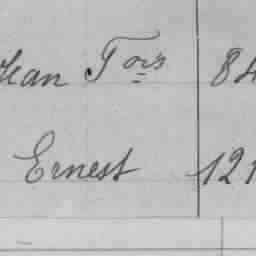 Jean Fois 84
Ernest 121